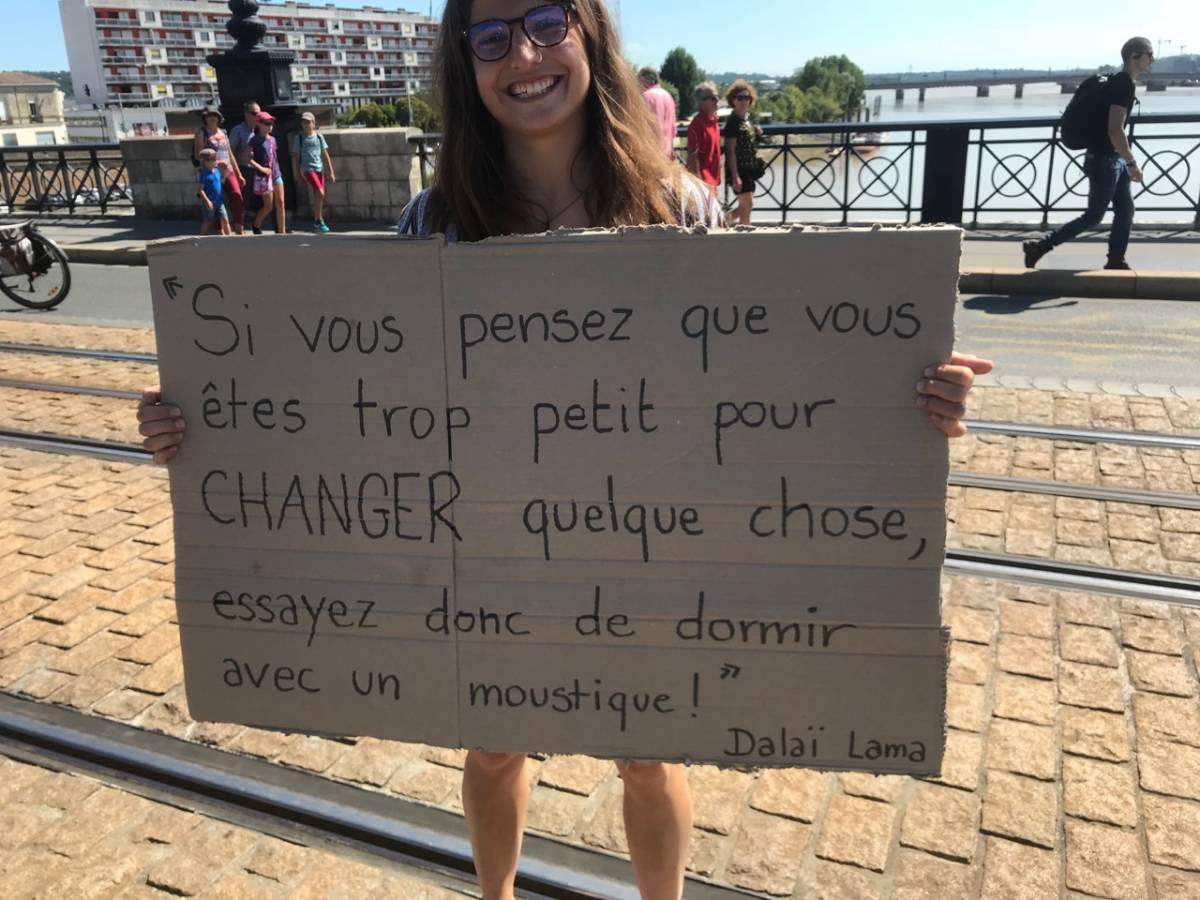 "Si vous pensez que vous
êtes trop petit pour
CHANGER quelque chose,
essayez donc de dormir
avec un moustique!"
Dalaï Lama